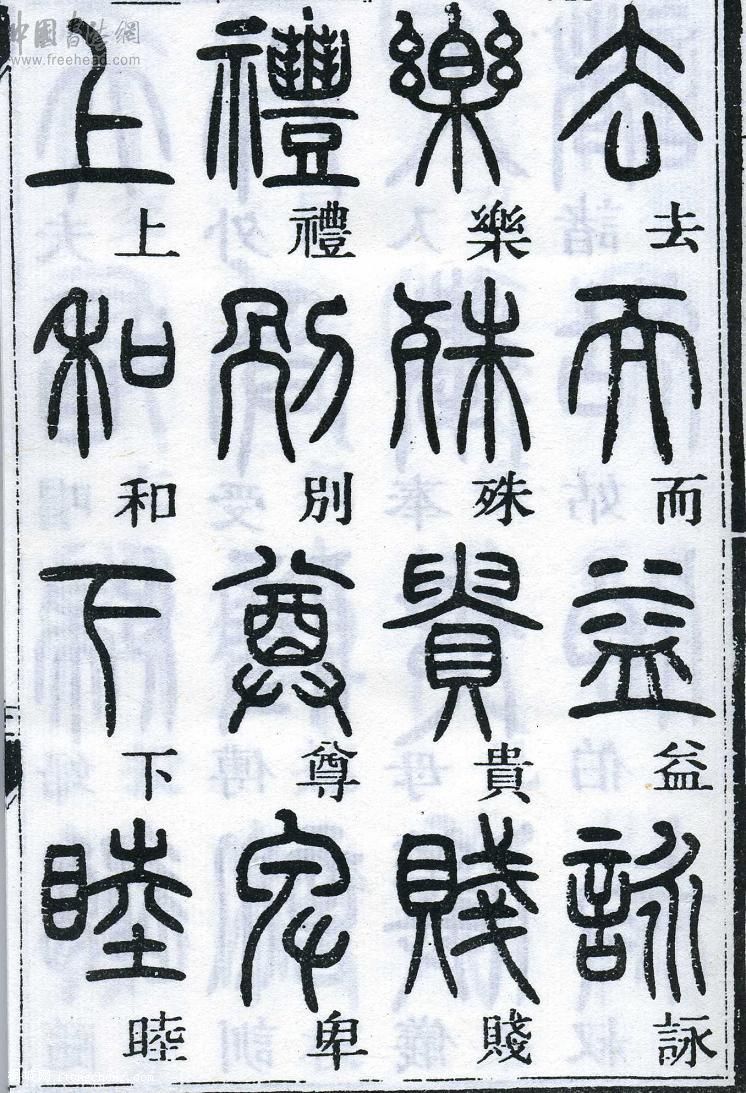 去而益詠
樂殊貴賤
禮別尊卑
上和下睦
中国书法網
www.freehead.com